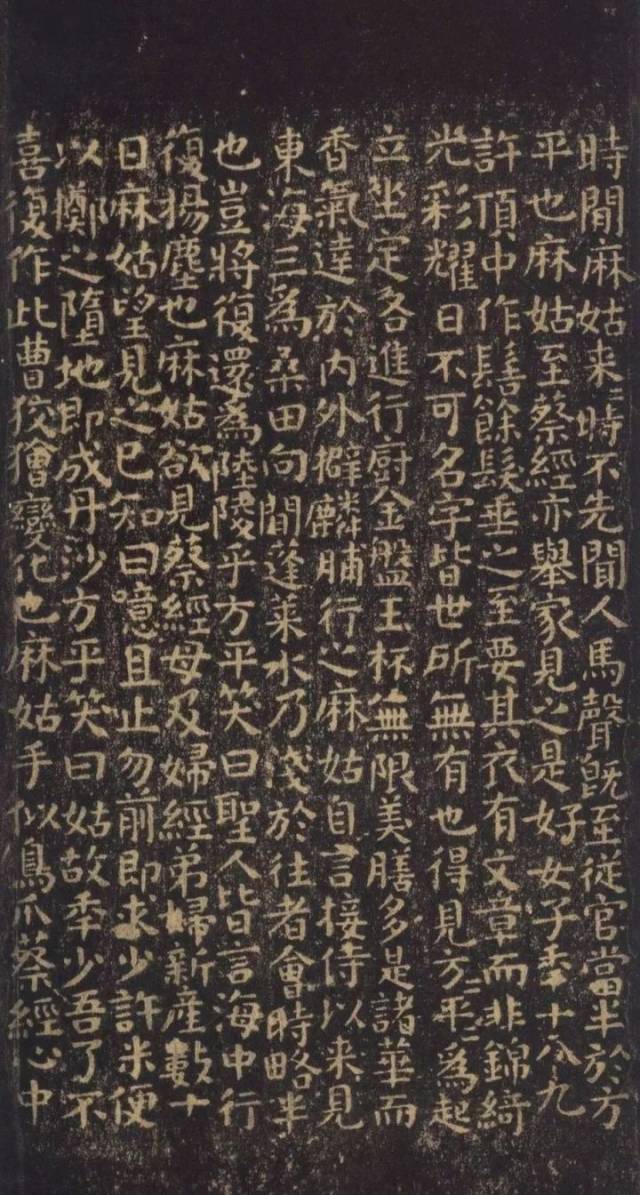 時聞麻姑来〻時不先聞人馬聲旣至従官當半於方
平也麻姑至蔡經亦舉家見之是好女子秊十八九
許頂中作髻餘髮垂之至要其衣有文章而非錦綺
光彩耀日不可名字皆世所無有也得見方平〻〻爲起
立坐定各進行廚金盤玉杯無限美膳多是諸華而
香氣達於内外擗麟脯行之麻姑自言接侍以来見
東海三爲桑田向間蓬莱水乃淺於往者會時略半
也豈將復還爲陸陵乎方平笑曰聖人皆言海中行
復揚塵也麻姑欲見蔡經母及婦經弟婦新産數十
日麻姑望見之已知曰噫且止勿前即求少許米便
以擲之墮地即成丹沙方平笑曰姑故秊少吾了不
喜復作此曹狡獪變化也麻姑手似鳥爪蔡經心中